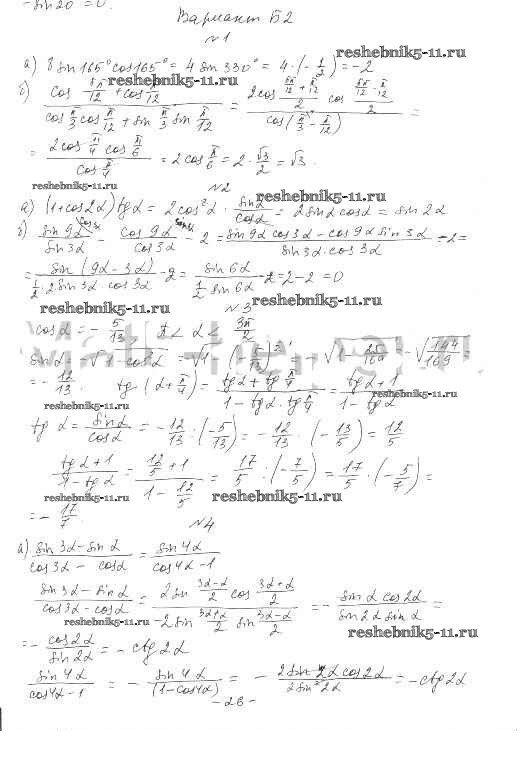 -sin20 = 0.
Вариант Б2
№1
а) 8 sin165° cos165° = 4 sin 330° = 4·(-1/2) = -2
reshebnik5-11.ru
б) (cos 5π/12 + cos π/12)/(cos π/3 cos π/12 + sin π/3 sin π/12) = (2cos (5π/12 + π/12)/2 cos (5π/12 - π/12)/2)/(cos(π/3 - π/12)) =
reshebnik5-11.ru
= (2cos π/4 cos π/6)/(cos π/4) = 2cos π/6 = 2·√3/2 = √3.
reshebnik5-11.ru
№2
а) (1+cos2α)tgα = 2cos²α · sinα/cosα = 2sinα cosα = sin2α
б) sin9α/sin3α - cos9α/cos3α - 2 = (sin9α cos3α - cos9α sin3α)/(sin3α·cos3α) - 2 =
= sin(9α-3α)/(1/2·2sin3α cos3α) - 2 = sin6α/(1/2 sin6α) - 2 = 2-2 = 0
reshebnik5-11.ru
reshebnik5-11.ru
№3
cosα = -5/13, π < α < 3π/2
sinα = -√(1-cos²α) = -√(1-(-5/13)²) = -√(1-25/169) = -√(144/169) =
= -12/13. tg(α+π/4) = (tgα + tg π/4)/(1 - tgα·tg π/4) = (tgα+1)/(1-tgα)
reshebnik5-11.ru
reshebnik5-11.ru
tgα = sinα/cosα = -12/13 : (-5/13) = -12/13 · (-13/5) = 12/5
(tgα+1)/(1-tgα) = (12/5 + 1)/(1 - 12/5) = 17/5 : (-7/5) = 17/5 · (-5/7) =
reshebnik5-11.ru
reshebnik5-11.ru
= -17/7.
№4
а) (sin3α - sinα)/(cos3α - cosα) = sin4α/(cos4α-1)
(sin3α - sinα)/(cos3α - cosα) = (2sin (3α-α)/2 cos (3α+α)/2)/(-2sin (3α+α)/2 sin (3α-α)/2) = -(sinα cos2α)/(sin2α sinα) =
reshebnik5-11.ru
= -cos2α/sin2α = -ctg2α
sin4α/(cos4α-1) = -sin4α/(1-cos4α) = -(2sin2α cos2α)/(2sin²2α) = -ctg2α
-26-